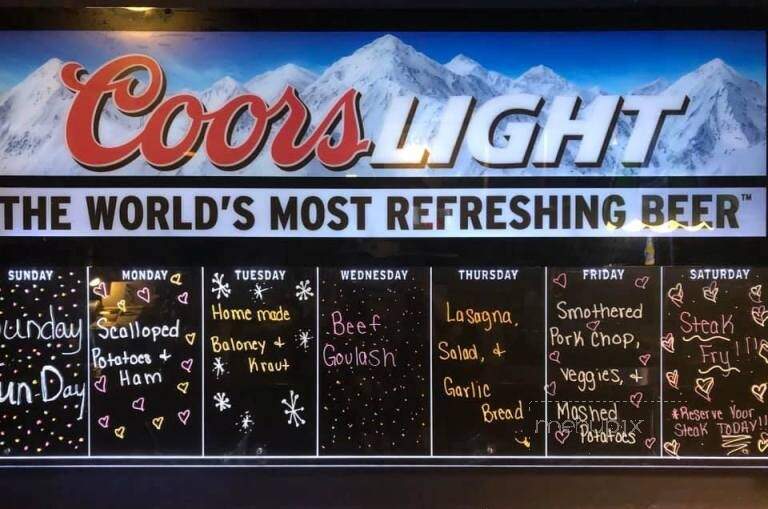 Coors LIGHT
THE WORLD'S MOST REFRESHING BEER™
SUNDAY
Sunday
Fun-Day
MONDAY
Scalloped
Potatoes &
Ham
TUESDAY
Home made
Baloney &
Kraut
WEDNESDAY
Beef
Goulash
THURSDAY
Lasagna,
Salad, &
Garlic
Bread
FRIDAY
Smothered
Pork Chop,
Veggies, &
Mashed
Potatoes
SATURDAY
Steak
Fry!!!
*Reserve Your
Steak TODAY!!
menupix